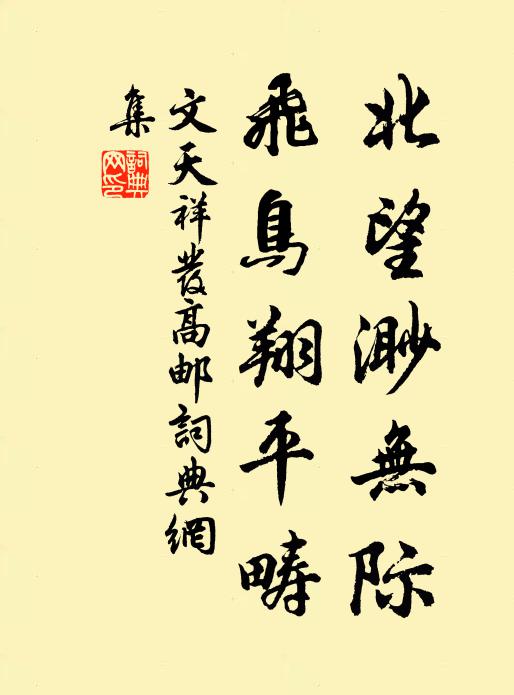 北望渺無际
飛鳥翔平疇
文天祥發高邮詞典網
集
詞典網印